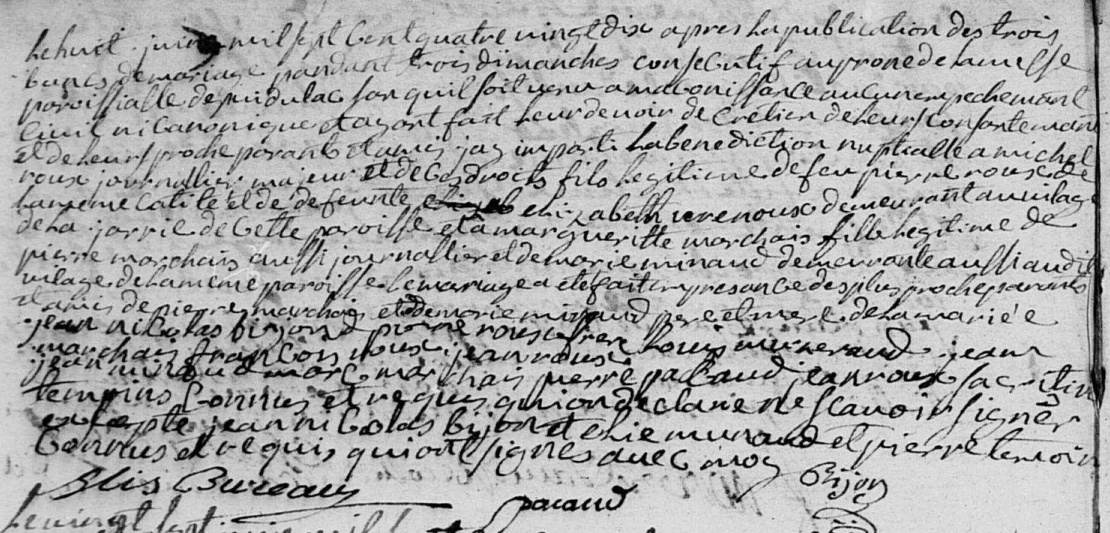 Le huit juin mil sept Cent quatre vingt dix apres La publication des trois
bancs de mariage pandant trois dimanches consecutif au prone de la messe
paroissialle de puidulac san quil soit venu a ma conissance aucun empechemant
Civil ni Canonique et ayant fait Leur devoir de Cretien de Leurs Consantemant
et de Leurs proche parants et amis jay imparti La benediction nuptialle a michel
roux journallier majeur et de Ces droits fils Legitime de feu pierre roux de
La meme Calité et de defeunte Elizabeth verenoux demeurant au vilage
de La jarrie de Cette paroisse et a margueritte marchais fille Legitime de
pierre marchais aussi journallier et de marie minaud demeurante aussi audit
vilage de la meme paroisse Le mariage a eté fait en presance des plus proche parants
et amis de pierre marchais et de marie minaud pere et mere de la mariée
jean nicolas bijon pierre roux frere Louis jean
marchais francois roux jean roux
jean minaud marc marchais pierre jean roux sacritin
temoins Connus et requis qui ont declarer ne scavoir signer
excepté jean nicolas bijon et et pierre temoin
Connus et requis qui ont signes avec moy
Bureau Bijon
Le vingt sept